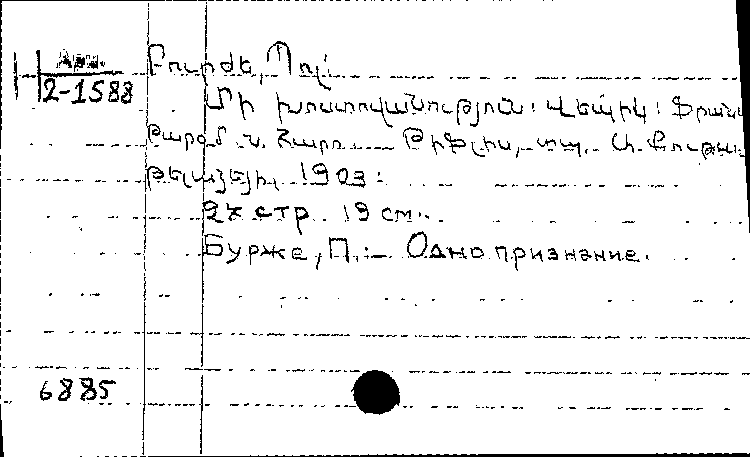 Арм. Բուրժե, Պոլ.
2-1588
Մի խոստովանություն։ Վեպիկ։ Ֆրանս
թարգմ. Ն. Հարո. Թիֆլիս, տպ.
թելաձեյի, 1903։
2х стр. 19 см.
Бурже, П.:— Одно признание.
6885